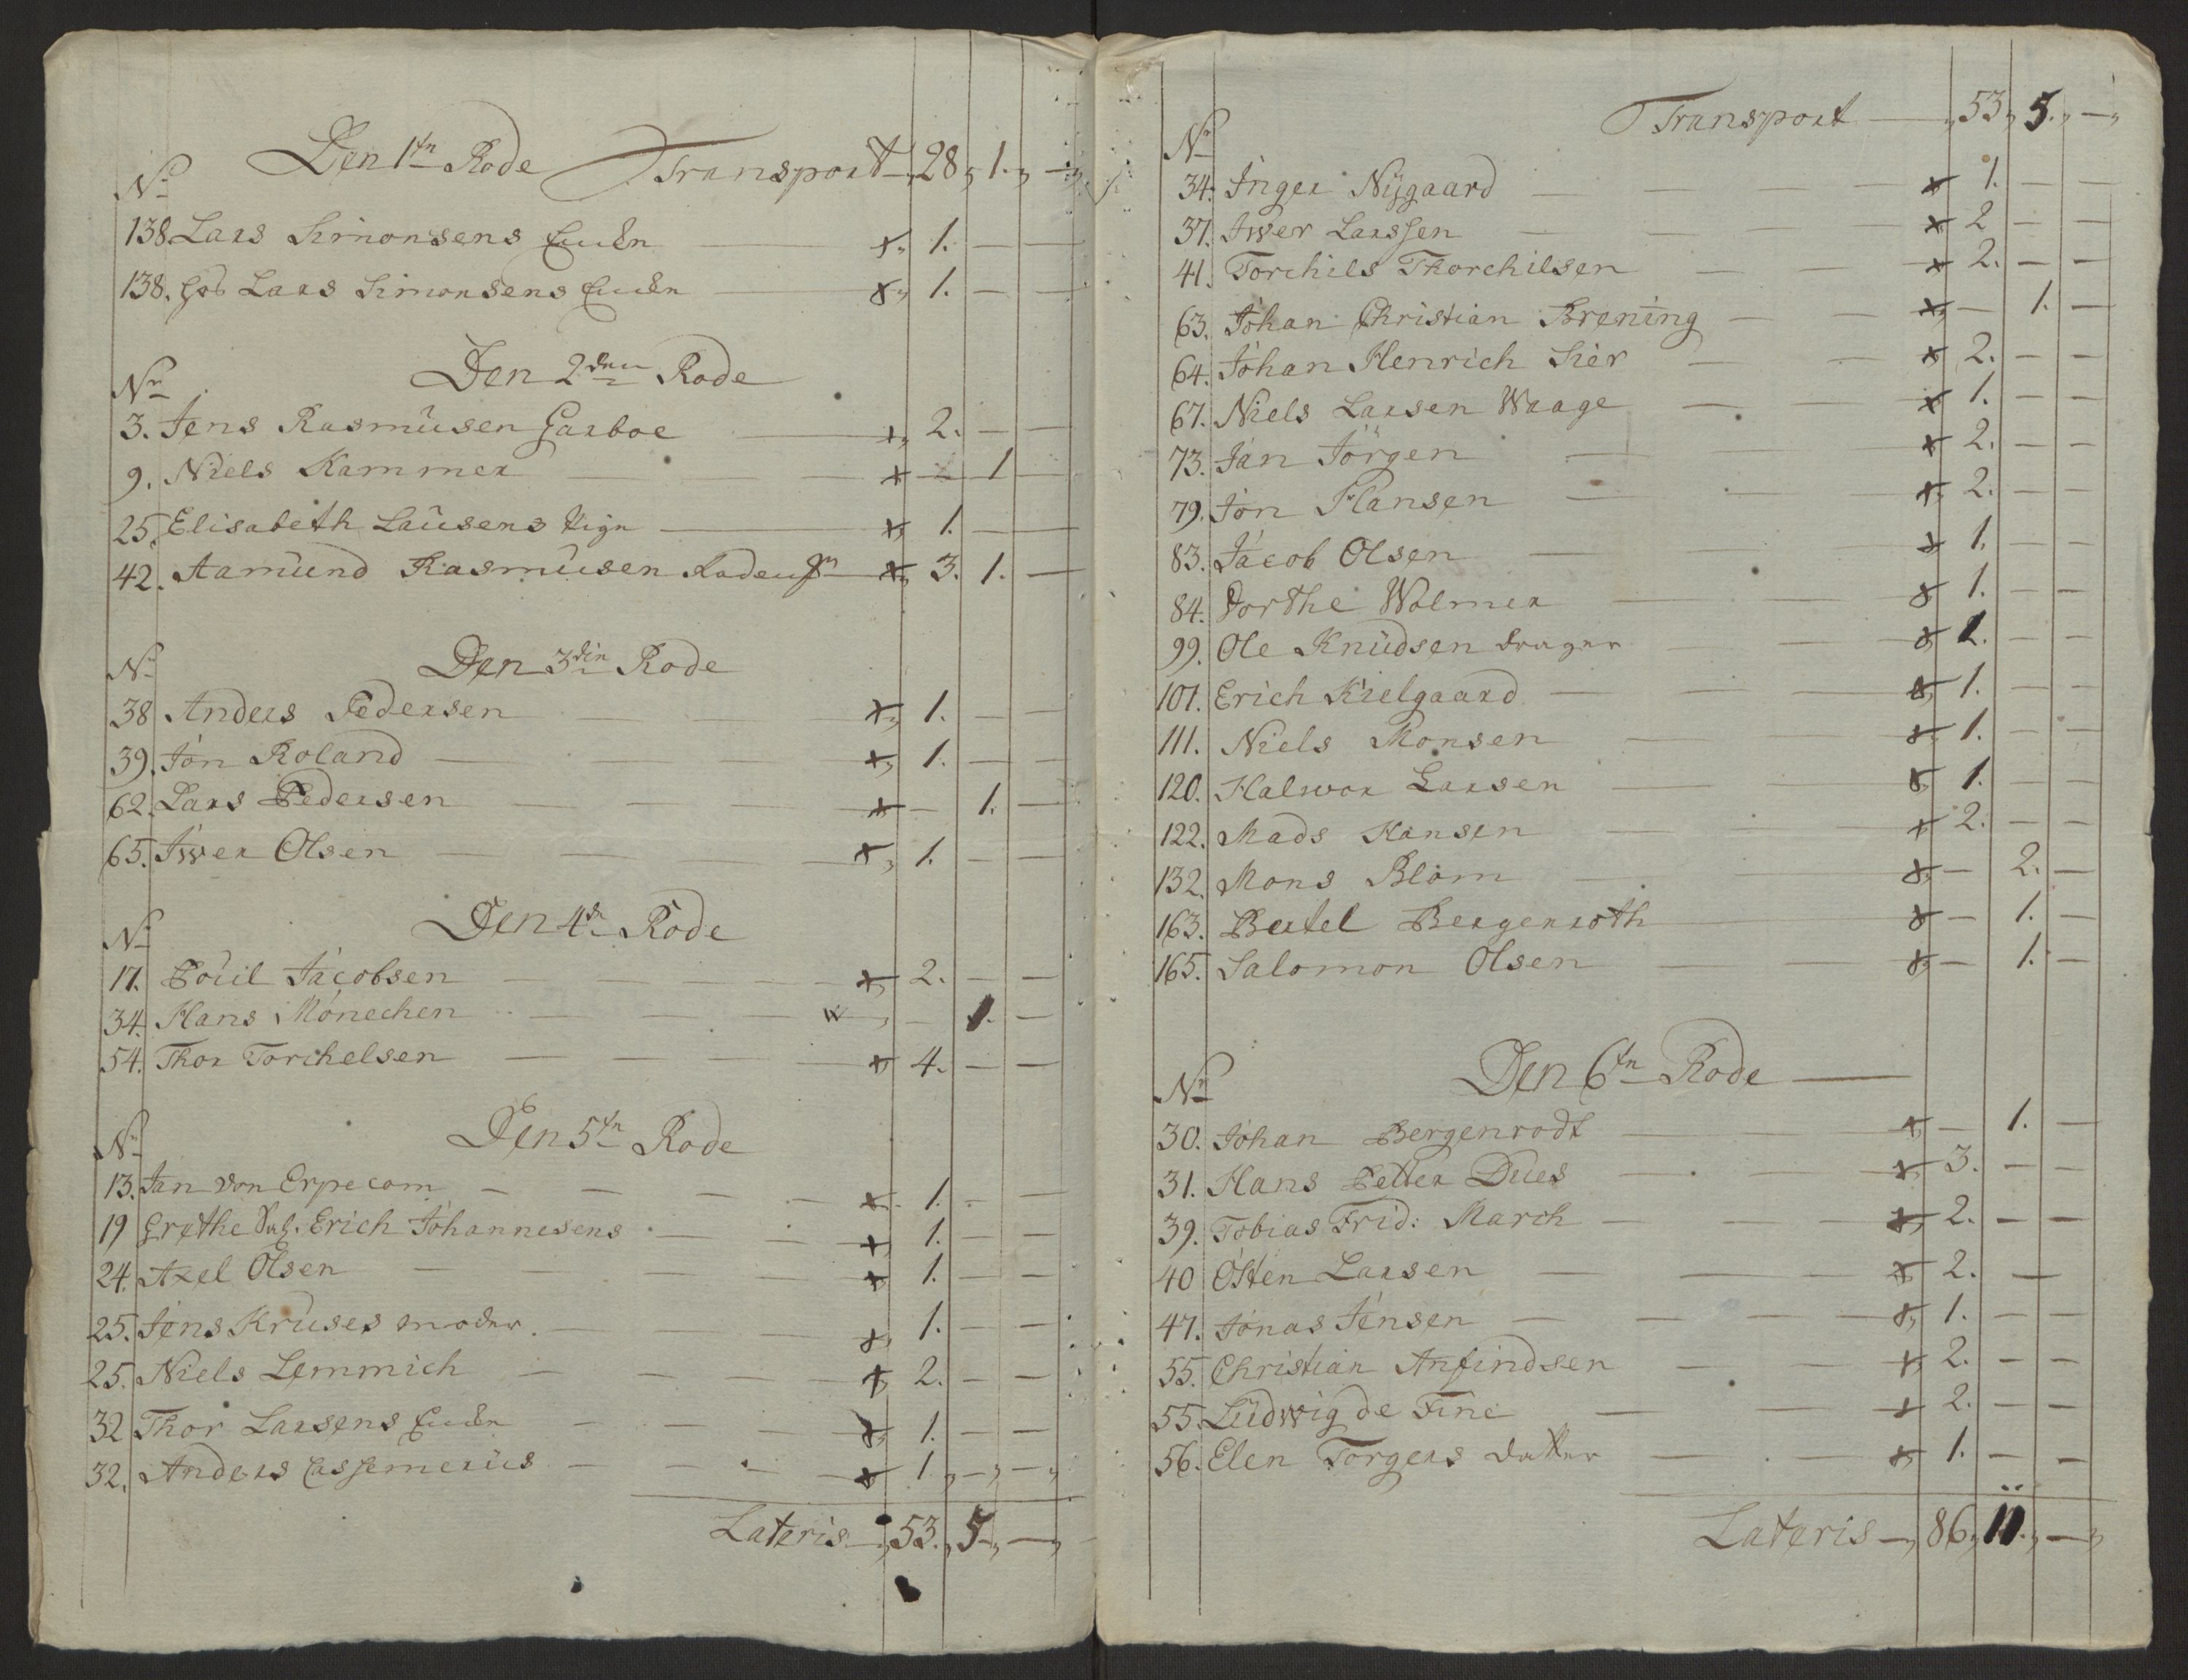 Den 1tn Rode Transport 28, 1. —
No
138. Lars Simonsens Encken x 1. — —
138. Lars Simonsens Encken x 1. — —
Den 2den Rode
Nr
3. Jens Rasmüsen Garboe x 2. — —
9. Niels Kammer x — 1 —
25. Elisabeth Laüsens x 1. — —
42. Aamünd Rasmüsen x 3. 1. —
Den 3din Rode
No
38 Anders Pedersen x 1. — —
39. Jon Roland x 1. — —
62. Lars Pedersen x — 1. —
65. Iwer Olsen x 1. — —
Den 4de Rode
No
17. Poüil Jacobsen x 2. — —
34. Hans Mönechen — 1. —
54. Thor Torchelsen x 4. — —
Den 5tn Rode
No
13. Jan von Erpecom x 1. — —
19 Grethe Sal. Erich Johannesens x 1. — —
24. Axel Olsen x 1. — —
25. Jens Krüses moder x 1. — —
25. Niels Lemmich x 2. — —
32 Thor Larsens Encken x 1. — —
32. Anders Cassemerüs x 1 — —
Lateris 53. 5 —
Transport 53, 5. —
No
34. Inger Nÿgaard x 1. — —
37. Iwer Larssen x 2 — —
41. Torchils Thorchilsen x 2. — —
63. Johan Christian Brening x — 1. —
64. Johan Henrich Sier x 2. — —
67. Niels Larsen Waage x 1. — —
73. Jan Jörgen x 2. — —
79. Jon Hansen x 2. — —
83. Jacob Olsen x 1. — —
84. Dorthe Wolmer x 1. — —
99. Ole Knüdsen drager x 1. — —
101. Erich Kielgaard x 1. — —
111. Niels Monsen x 1. — —
120. Halwor Larsen x 1. — —
122. Mads Hansen x 2. — —
132. Mons Blom x — 2. —
163. Bertel Bergenroth x — 1. —
165. Salomon Olsen x — 1. —
Den 6tn Rode
No
30. Johan Bergenrodt x — 1. —
31. Hans Petter Dües x 3. — —
39. Tobias Frid: March x 2. — —
40 Östen Larsen x 2. —
47. Jonas Jensen x 1. — —
55. Christian Anfindsen x 2. — —
55. Lüdwig de Fine x 2. — —
56. Elen Torgers datter x 1. — —
Lateris 86, 11. —